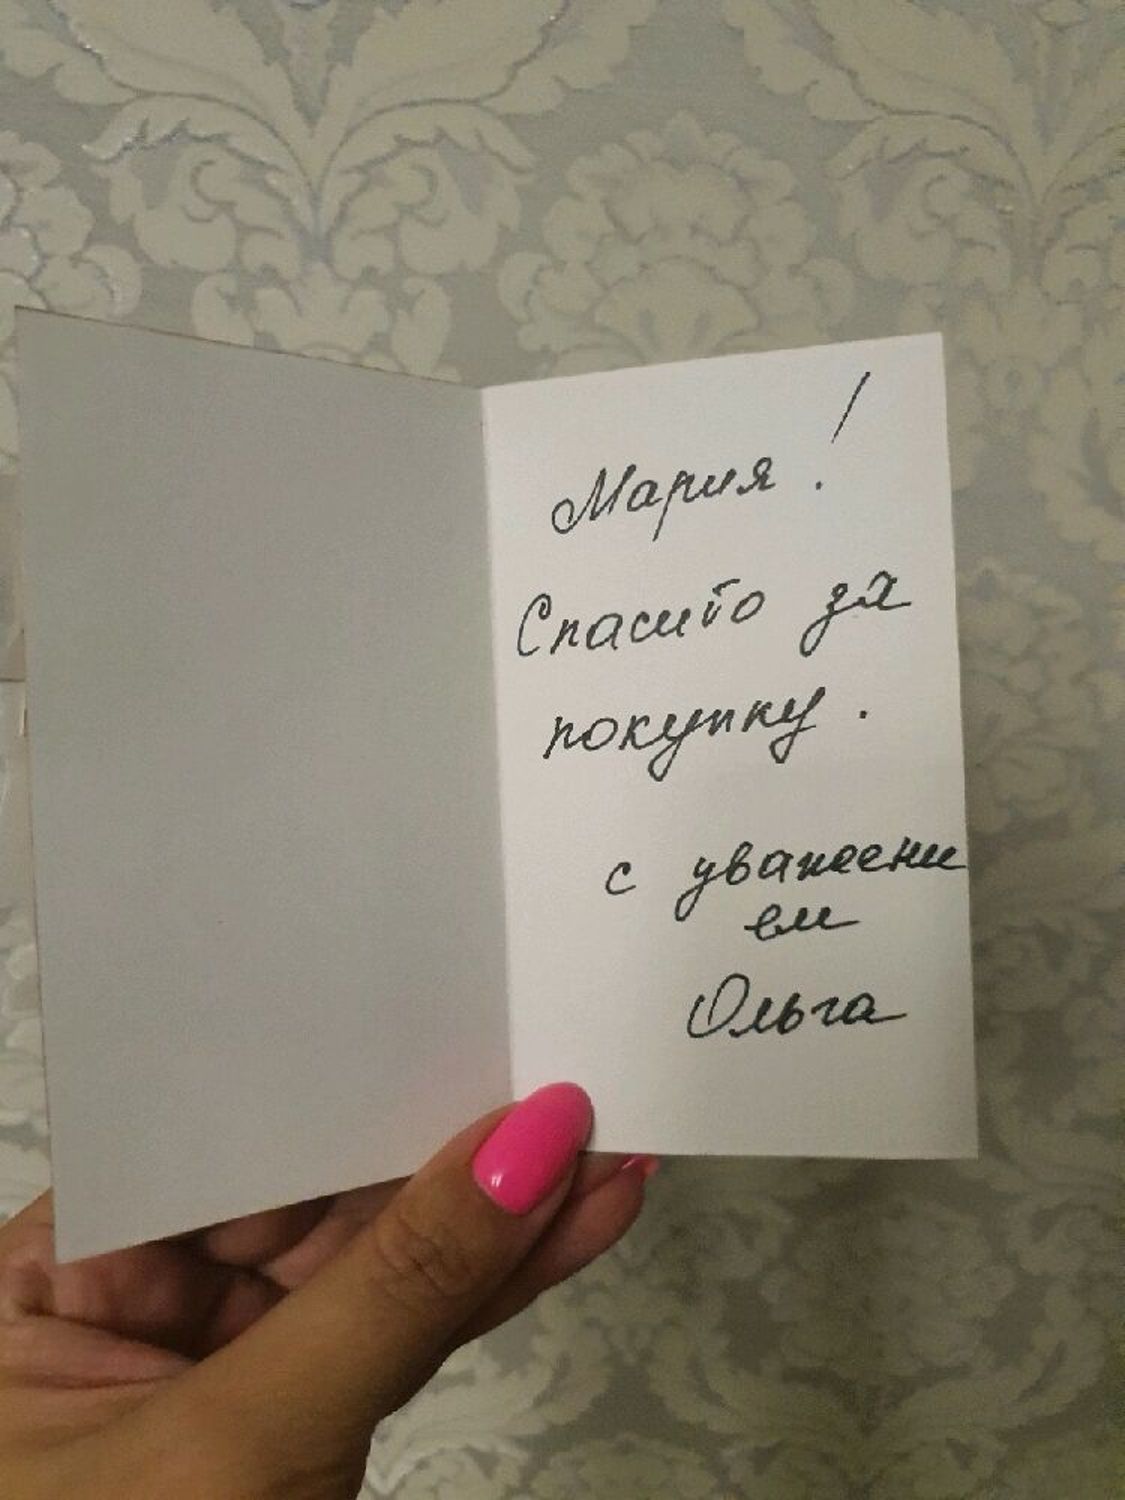 Мария!
Спасибо за
покупку.
с уважени
ем
Ольга